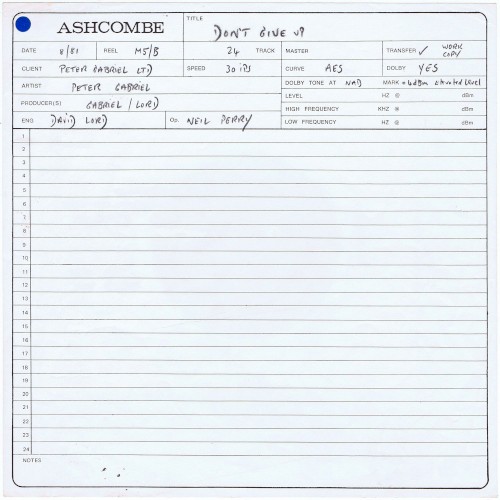 ASHCOMBE
TITLE DON'T GIVE UP
DATE 8/81 REEL M5/B 24 TRACK MASTER TRANSFER ✓ WORK COPY
CLIENT PETER GABRIEL LTD SPEED 30 IPS CURVE AES DOLBY YES
ARTIST PETER GABRIEL DOLBY TONE AT NAB MARK +4dBm elevated level
PRODUCER(S) GABRIEL / LORD LEVEL HZ @ dBm
HIGH FREQUENCY KHZ @ dBm
ENG DAVID LORD Op. NEIL PERRY LOW FREQUENCY HZ @ dBm
1
2
3
4
5
6
7
8
9
10
11
12
13
14
15
16
17
18
19
20
21
22
23
24
NOTES